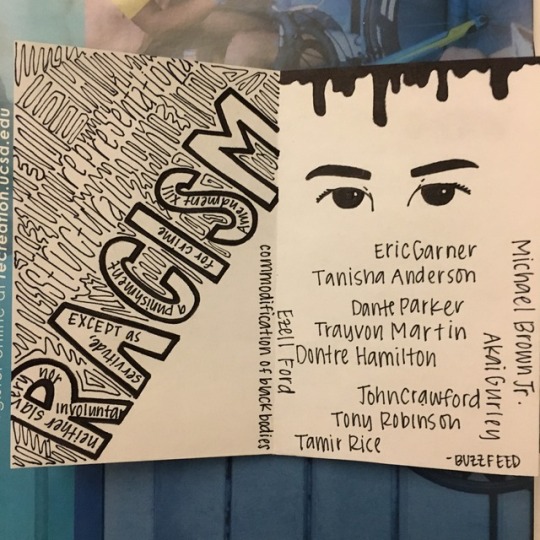 online at recreation.ucsd.edu
representation
RACISM
neither slavery
nor
involuntary
servitude,
EXCEPT as
a punishment
for crime
Amendment
commodification of black bodies
Eric Garner
Tanisha Anderson
Dante Parker
Trayvon Martin
Dontre Hamilton
John Crawford
Tony Robinson
Tamir Rice
Ezell Ford
Akai Gurley
Michael Brown Jr.
-BUZZFEED